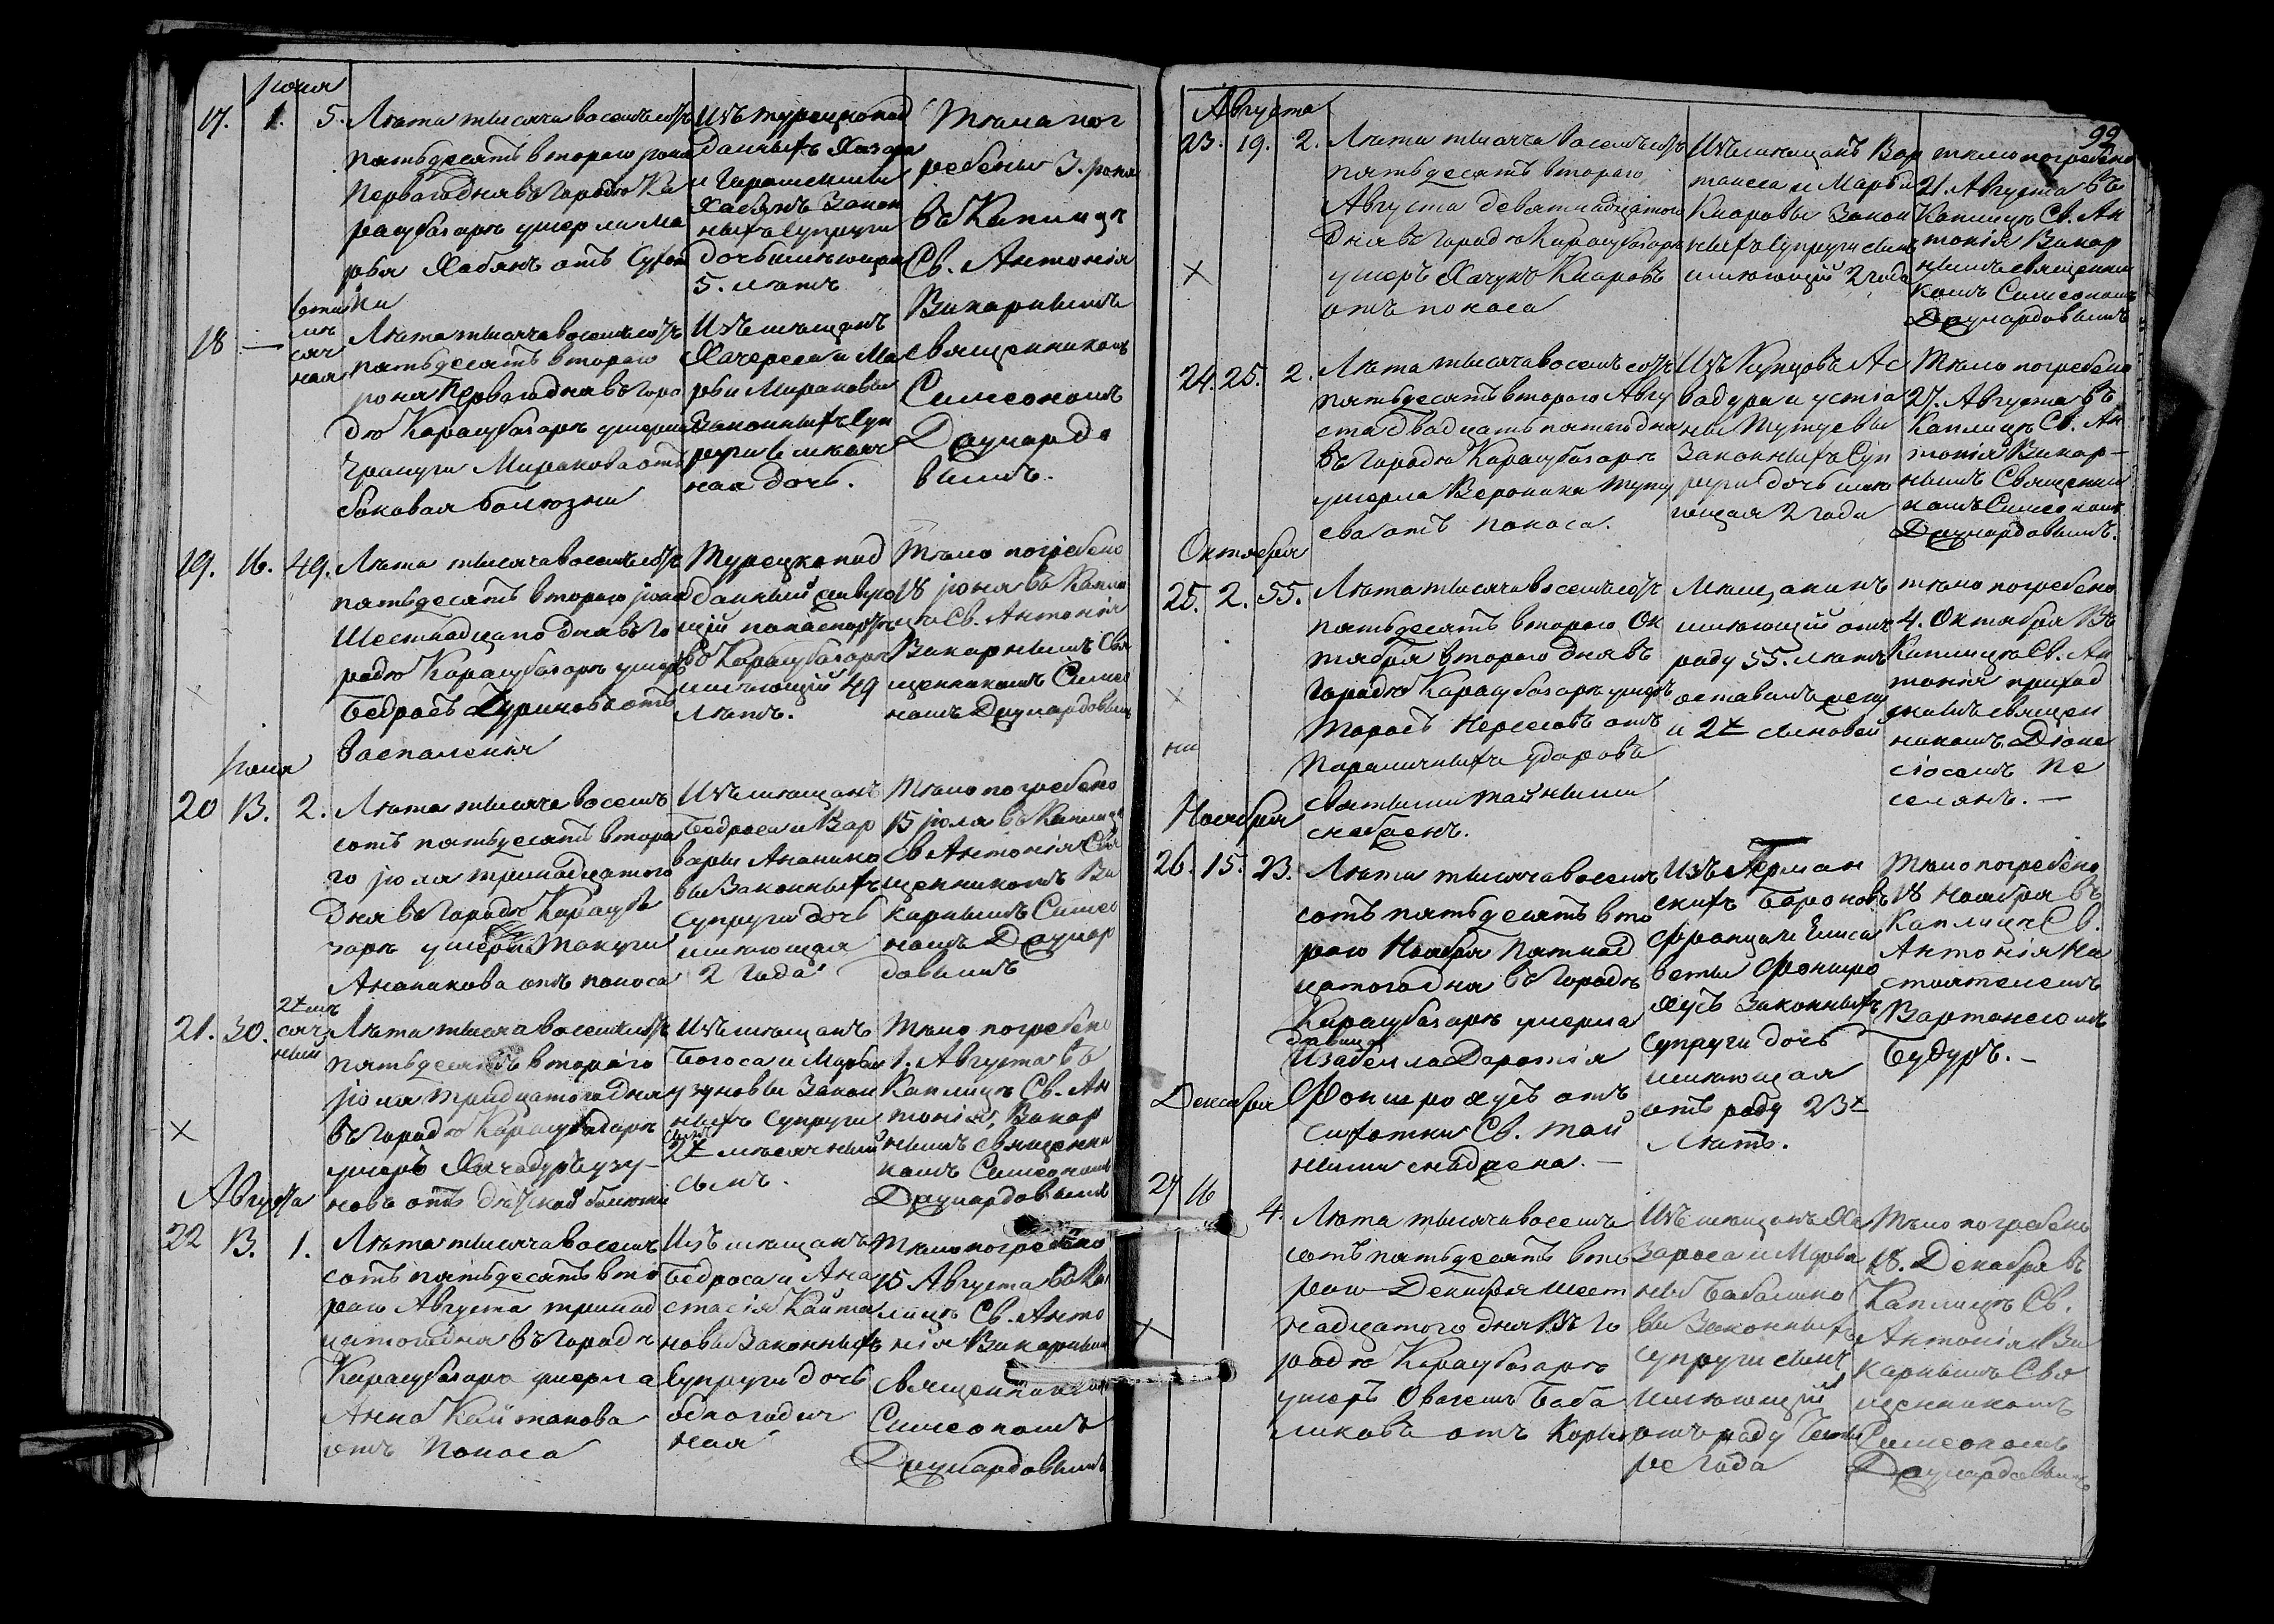 Іюня
17. 1. 5. Лѣта тысяча восемьсотъ
пятьдесятъ втораго іюня
перваго дня въ городѣ Ка
расубазарѣ умерла Ма
рья Хабянъ отъ
Изъ турецкопод
данныхъ
и
Хабянъ закон
ныхъ супруги
дочь имѣющая
5. лѣтъ
Тѣла пог
ребены 3. іюня
въ Каплицѣ
Св. Антонія
Викарнымъ
священникомъ
Симеономъ
18 — 6ти мѣ
сяч
ная
Лѣта тысяча восемьсотъ
пятьдесятъ втораго
іюня перваго дня въ горо
дѣ Карасубазарѣ умерла
Миракова отъ
боковая болѣзни
Изъ мѣщанъ
и Ма
рьи Мираковы
законныхъ суп
руги 6 мѣсяч
ная дочь.
19. 16. 49. Лѣта тысяча восемьсотъ
пятьдесятъ втораго іюня
шестнадцато дня въ го
родѣ Карасубазарѣ умеръ
Бедросъ отъ
воспаленія
Турецкопод
данный
щій
въ Карасубазарѣ
имѣющій 49
лѣтъ.
Тѣло погребено
18 іюня въ Капли
цѣ Св. Антонія
Викарнымъ свя
щенникомъ Симео
номъ
Іюля
20 13. 2. Лѣта тысяча восемь
сотъ пятьдесятъ втора
го іюля тринадцатого
дня въ городѣ Карасуба
зарѣ умерла
Ананикова отъ поноса
Изъ мѣщанъ
Бедроса и Вар
вары Ананико
вы законныхъ
супруги дочь
имѣющая
2 года
Тѣло погребено
15 іюля въ Каплицѣ
Св Антонія свя
щенникомъ Ви
карнымъ Симео
номъ
21. 30. 2хмѣ
сяч
ный
Лѣта тысяча восемьсотъ
пятьдесятъ втораго
іюля тридцатого дня
въ городѣ Карасубазарѣ
умеръ Хачадуръ узу-
новъ отъ дѣтской болѣзни
Изъ мѣщанъ
Богоса и Марьи
узуновы закон
ныхъ супруги
2х мѣсячный
сынъ.
Тѣло погребено
1. Августа въ
Каплицѣ Св. Ан
тонія, Викар
нымъ священни
комъ Симеономъ
Августа
22 13. 1. Лѣта тысяча восемь
сотъ пятьдесятъ вто
раго Августа тринад
цатого дня въ городѣ
Карасубазарѣ умерла
Анна Кайтанова
отъ поноса
Изъ мѣщанъ
Бедроса и Ана
стасія Кайта
новы законныхъ
супруги дочь
одногодич
ная
Тѣло погребено
15 Августа въ Кап
лицѣ Св. Анто
нія Викарнымъ
священникомъ
Симеономъ
99
Августа
23. 19. 2. Лѣта тысяча восемьсотъ
пятьдесятъ втораго
Августа девятнадцатого
дня въ городѣ Карасубазарѣ
умеръ Хачукъ Киаровъ
отъ поноса
Изъ мѣщанъ Вар
и Марьи
Киаровы закон
ныхъ супруги сынъ
имѣющій 2 года
тѣло погребено
21. Августа въ
Каплицѣ Св. Ан
тонія Викар
нымъ священни
комъ Симеономъ
24. 25. 2. Лѣта тысяча восемьсотъ
пятьдесятъ втораго Авгу
ста двадцать пятого дня
въ городѣ Карасубазарѣ
умерла Вероника Туту
ева отъ поноса.
Изъ Купцовъ Ас
вадура и устіа
ны Тутуевы
законныхъ суп
руги дочь имѣ
ющая 2 года
Тѣло погребено
27. Августа въ
Каплицѣ Св. Ан
тонія Викар-
нымъ Священни
комъ Симеономъ
Октября
25. 2. 55. Лѣта тысяча восемьсотъ
пятьдесятъ втораго Ок
тября втораго дня въ
городѣ Карасубазарѣ умеръ
Торосъ Нерсесовъ отъ
параличныхъ ударовъ
святыми тайными
снабденъ.
Мѣщанинъ
имѣющій отъ
роду 55. лѣтъ
оставилъ жену
и 2х сыновей
тѣло погребено
4. Октября въ
Каплицѣ Св. Ан
тонія приход
нымъ священ
никомъ Діоне
сіосомъ
Ноября
26. 15. 23. Лѣта тысяча восемь
сотъ пятьдесятъ вто
раго Ноября пятнад
цатого дня въ городѣ
Карасубазарѣ умерла
дѣвица
Изабелла Доротія
Фонширохусъ отъ
сухотки Св. тай
ными снабдена. —
Изъ Герман
скихъ Бароновъ
Франца и Елиса
веты Фонширо
хусъ законныхъ
супруги дочь
имѣющая
отъ роду 23х
лѣтъ.
Тѣло погребено
18 Ноября въ
Каплицѣ Св.
Антонія На
стоятелемъ
Вартаносомъ
Декабря
27 16 4. Лѣта тысяча восемь
сотъ пятьдесятъ вто
раго Декабря шест
надцатого дня въ го
родѣ Карасубазарѣ
умеръ Ованесъ Баба
ликовъ отъ кори
Изъ мѣщанъ Ха
зароса и Марьи
ны Бабалико
вы законныхъ
супруги сынъ
имѣющій
отъ роду четы
ре года
Тѣло погребено
18. Декабря въ
Каплицѣ Св.
Антонія Ви
карнымъ Свя
щенникомъ
Симеономъ